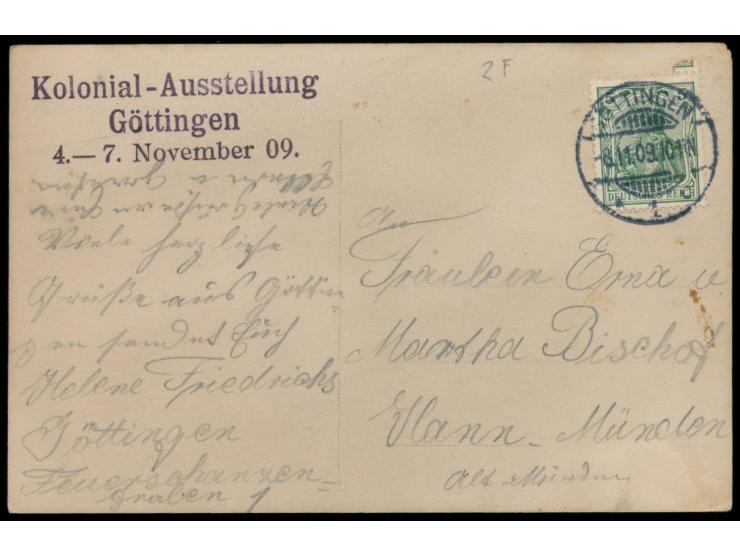 2F
Kolonial-Ausstellung
Göttingen
4.— 7. November 09.
GÖTTINGEN
-8.11.09.10-11N
* 1 c
DEUTSCHES REICH
Viele Grüße an Eure
Eltern u
Viele herzliche
Grüße aus Göttin-
gen sendet Euch
Helene Friedrichs
Göttingen
Feuerschanzen-
graben 1
An
Fräulein Erna u
Martha Bischof
Hann-Münden
Alt Münden